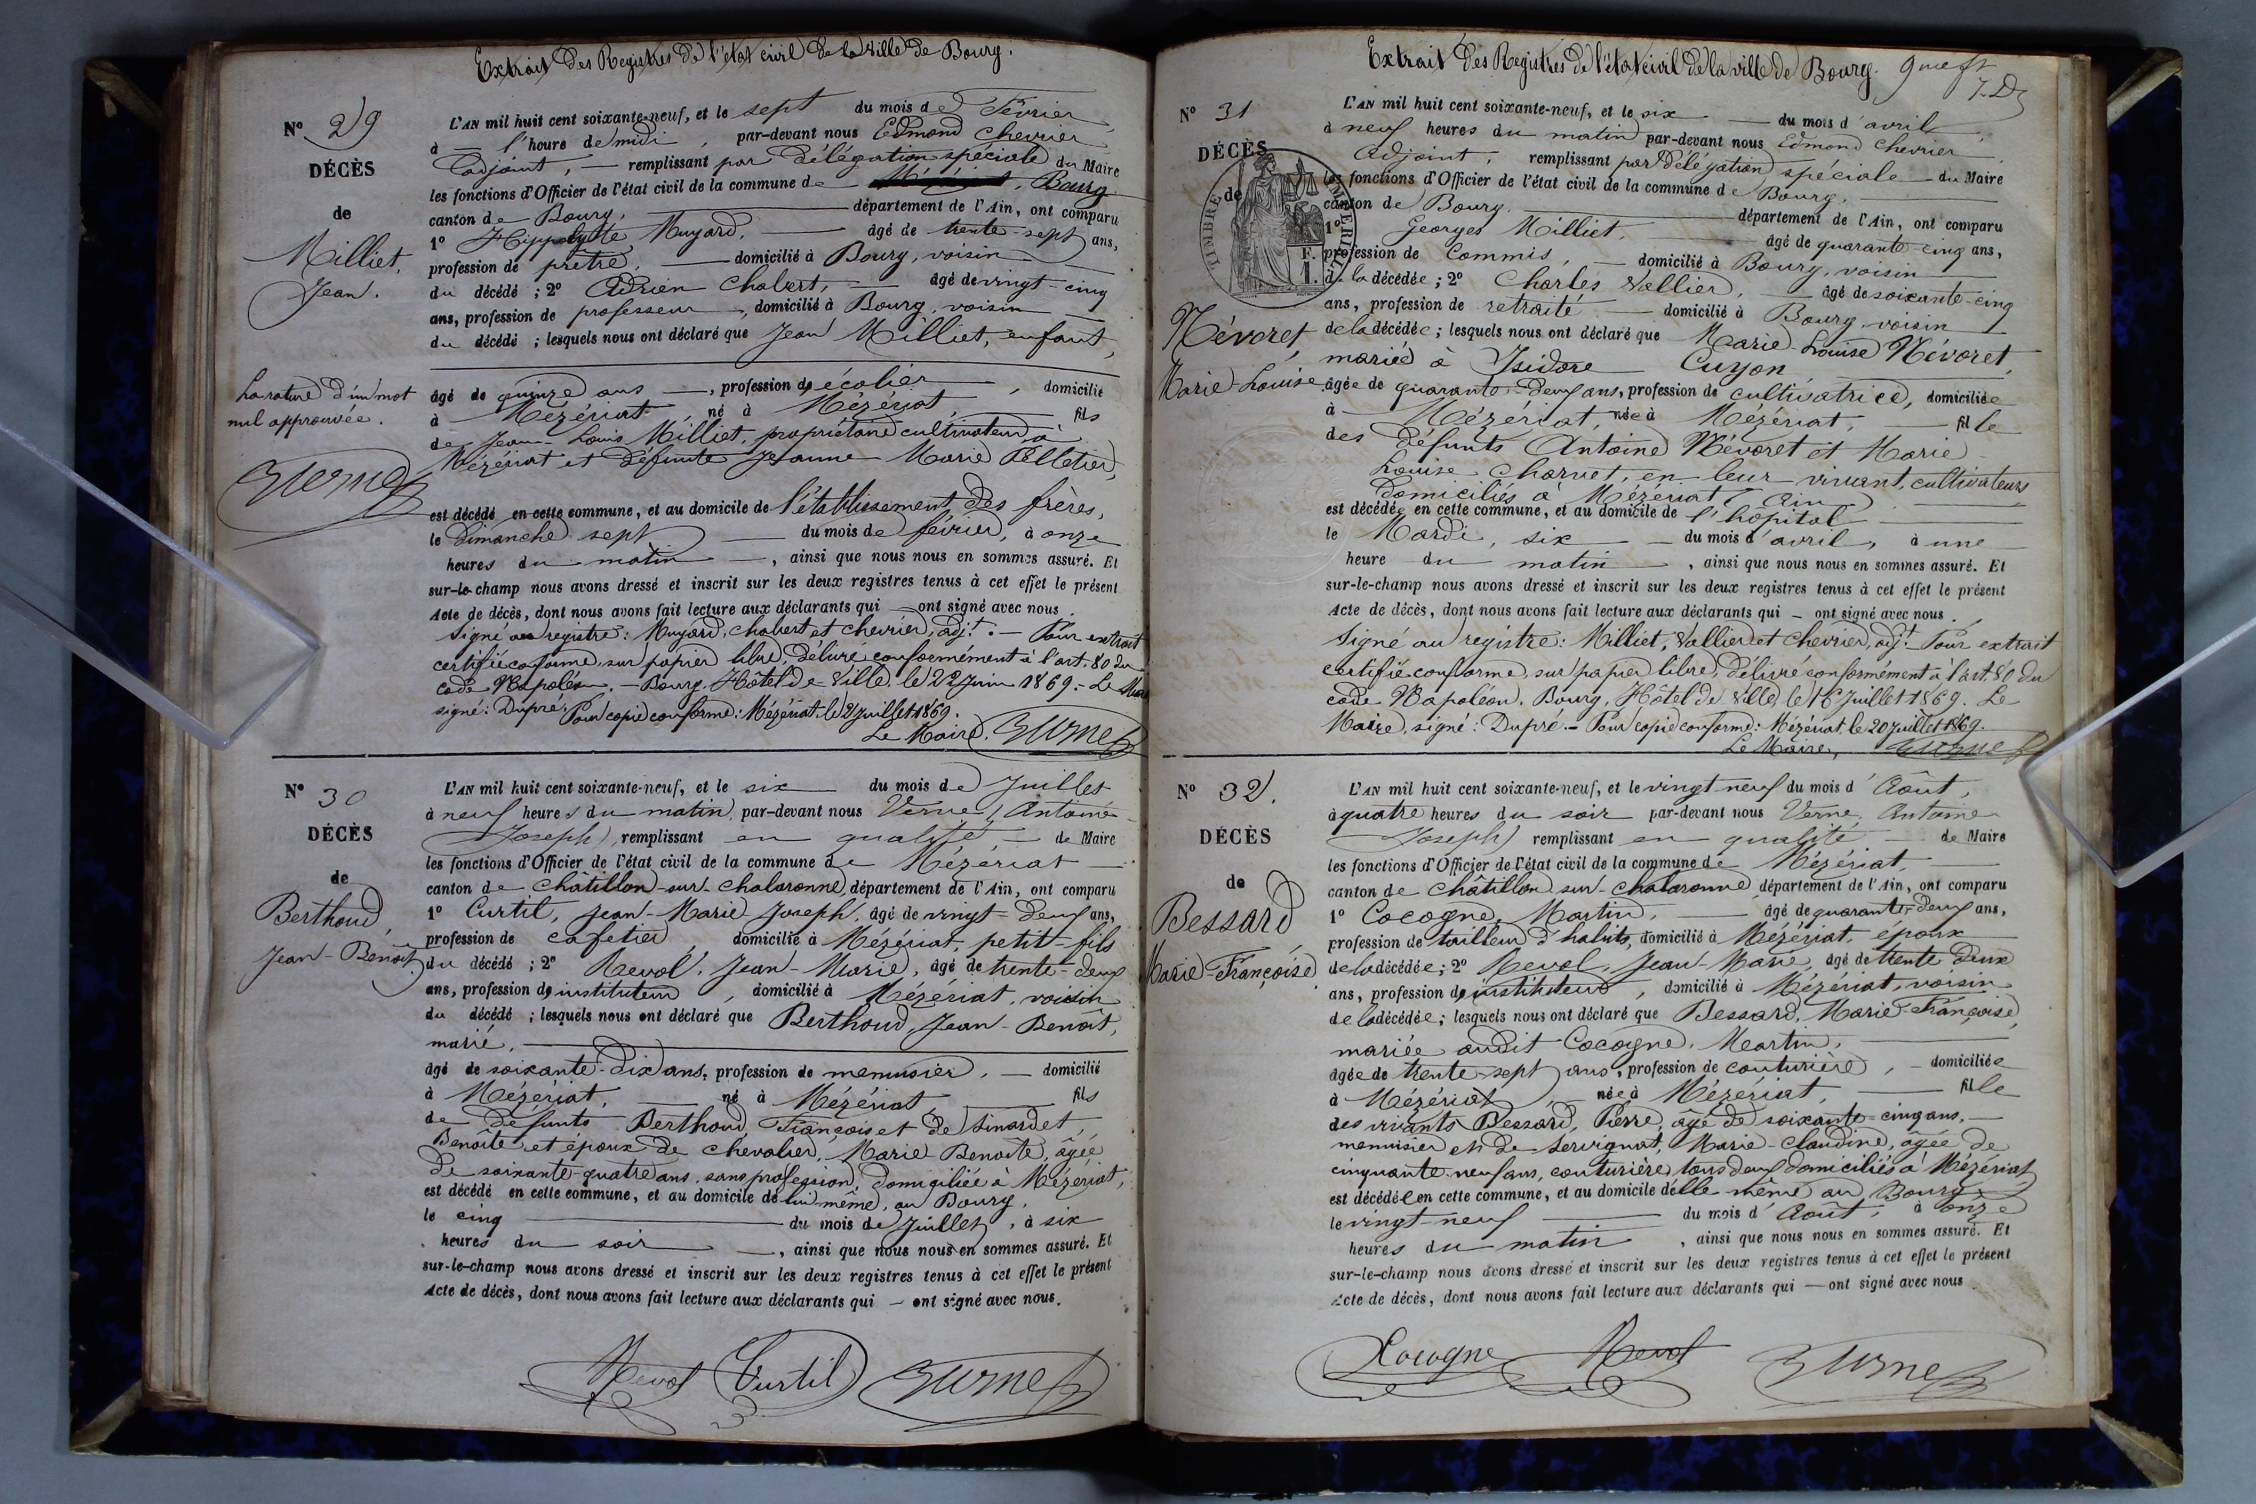 Extrait des Registres de l'état civil de la ville de Bourg.
N° 29
DÉCÈS
de
Milliet,
Jean.
L'AN mil huit cent soixante-neuf, et le sept du mois de Février,
à l'heure de midi, par-devant nous Edmond Chevrier
adjoint, remplissant par délégation spéciale du Maire
les fonctions d'Officier de l'état civil de la commune de Bourg
canton de Bourg, département de l'Ain, ont comparu
1° Hippolyte Muyard, âgé de trente-sept ans,
profession de prêtre, domicilié à Bourg, voisin
du décédé ; 2° Adrien Chabert, âgé de vingt-cinq
ans, profession de professeur, domicilié à Bourg, voisin
du décédé ; lesquels nous ont déclaré que Jean Milliet, enfant,
âgé de quinze ans, profession de écolier, domicilié
à Mézériat, né à Mézériat, fils
de Jean-Louis Milliet, propriétaire cultivateur à
Mézériat et défunte Jeanne Marie Pelletier,
est décédé en cette commune, et au domicile de l'établissement des frères,
le dimanche sept du mois de février, à onze
heures du matin, ainsi que nous nous en sommes assuré. Et
sur-le-champ nous avons dressé et inscrit sur les deux registres tenus à cet effet le présent
Acte de décès, dont nous avons fait lecture aux déclarants qui ont signé avec nous.
Signé au registre : Muyard, Chabert et Chevrier, adjt. - Pour extrait
certifié conforme, sur papier libre, délivré conformément à l'art. 80 du
code Napoléon. - Bourg, Hôtel de Ville, le 22 Juin 1869. - Le Maire
signé : Dupré. Pour copie conforme : Mézériat, le 2 juillet 1869.
Le Maire, Verne
La rature d'un mot
nul approuvée.
Verne
N° 30
DÉCÈS
de
Berthoud,
Jean-Benoît.
L'AN mil huit cent soixante-neuf, et le six du mois de Juillet
à neuf heures du matin, par-devant nous Verne (Antoine-
Joseph), remplissant en qualité de Maire
les fonctions d'Officier de l'état civil de la commune de Mézériat
canton de Châtillon-sur-Chalaronne, département de l'Ain, ont comparu
1° Curtil, Jean-Marie-Joseph, âgé de vingt-deux ans,
profession de cafetier, domicilié à Mézériat, petit-fils
du décédé ; 2° Revol, Jean-Marie, âgé de trente-deux
ans, profession de instituteur, domicilié à Mézériat, voisin
du décédé ; lesquels nous ont déclaré que Berthoud, Jean-Benoît,
marié,
âgé de soixante-dix ans, profession de menuisier, domicilié
à Mézériat, né à Mézériat, fils
de défunts Berthoud François et de Sinardet,
Benoîte et époux de Chevalier, Marie Benoîte, âgée
de soixante-quatre ans, sans profession, domiciliée à Mézériat,
est décédé en cette commune, et au domicile de lui-même, au Bourg,
le cinq du mois de Juillet, à six
heures du soir, ainsi que nous nous en sommes assuré. Et
sur-le-champ nous avons dressé et inscrit sur les deux registres tenus à cet effet le présent
Acte de décès, dont nous avons fait lecture aux déclarants qui ont signé avec nous.
Revol Curtil Verne
Extrait des Registres de l'état civil de la ville de Bourg.
N° 31
DÉCÈS
de
TIMBRE IMPÉRIAL
1 F.
Névoret,
Marie-Louise.
L'AN mil huit cent soixante-neuf, et le six du mois d'avril,
à neuf heures du matin par-devant nous Edmond Chevrier,
adjoint, remplissant par délégation spéciale du Maire
les fonctions d'Officier de l'état civil de la commune de Bourg,
canton de Bourg, département de l'Ain, ont comparu
1° Georges Milliet, âgé de quarante-cinq ans,
profession de Commis, domicilié à Bourg, voisin
de la décédée ; 2° Charles Vallier, âgé de soixante-cinq
ans, profession de retraité domicilié à Bourg, voisin
de la décédée ; lesquels nous ont déclaré que Marie-Louise Névoret,
mariée à Isidore Cuyon
âgée de quarante-deux ans, profession de cultivatrice, domiciliée
à Mézériat, née à Mézériat, fille
des défunts Antoine Névoret et Marie-
Louise Charvet, en leur vivant, cultivateurs
domiciliés à Mézériat (Ain)
est décédée en cette commune, et au domicile de l'hôpital
le Mardi, six du mois d'avril, à une
heure du matin, ainsi que nous nous en sommes assuré. Et
sur-le-champ nous avons dressé et inscrit sur les deux registres tenus à cet effet le présent
Acte de décès, dont nous avons fait lecture aux déclarants qui ont signé avec nous.
Signé au registre : Milliet, Vallier et Chevrier, adjt. Pour extrait
certifié conforme, sur papier libre, délivré conformément à l'art. 80 du
code Napoléon. Bourg, Hôtel de Ville, le 16 Juillet 1869. Le
Maire, signé : Dupré. - Pour copie conforme : Mézériat, le 20 juillet 1869.
Le Maire, Verne
N° 32.
DÉCÈS
de
Bessard
Marie-Françoise.
L'AN mil huit cent soixante-neuf, et le vingt-neuf du mois d'Août,
à quatre heures du soir par-devant nous Verne, Antoine
Joseph) remplissant en qualité de Maire
les fonctions d'Officier de l'état civil de la commune de Mézériat,
canton de Châtillon-sur-Chalaronne, département de l'Ain, ont comparu
1° Cocogne, Martin, âgé de quarante-deux ans,
profession de tailleur d'habits, domicilié à Mézériat, époux
de la décédée ; 2° Revol, Jean-Marie, âgé de trente deux
ans, profession de instituteur, domicilié à Mézériat, voisin
de la décédée ; lesquels nous ont déclaré que Bessard, Marie-Françoise,
mariée audit Cocogne, Martin,
âgée de trente-sept ans, profession de couturière, domiciliée
à Mézériat, née à Mézériat, fille
des vivants Bessard, Pierre, âgé de soixante-cinq ans,
menuisier et de Servignat, Marie-Claudine, âgée de
cinquante-neuf ans, couturière, tous deux domiciliés à Mézériat,
est décédée en cette commune, et au domicile d'elle-même au Bourg
le vingt-neuf du mois d'Août, à onze
heures du matin, ainsi que nous nous en sommes assuré. Et
sur-le-champ nous avons dressé et inscrit sur les deux registres tenus à cet effet le présent
Acte de décès, dont nous avons fait lecture aux déclarants qui ont signé avec nous.
Cocogne Revol Verne